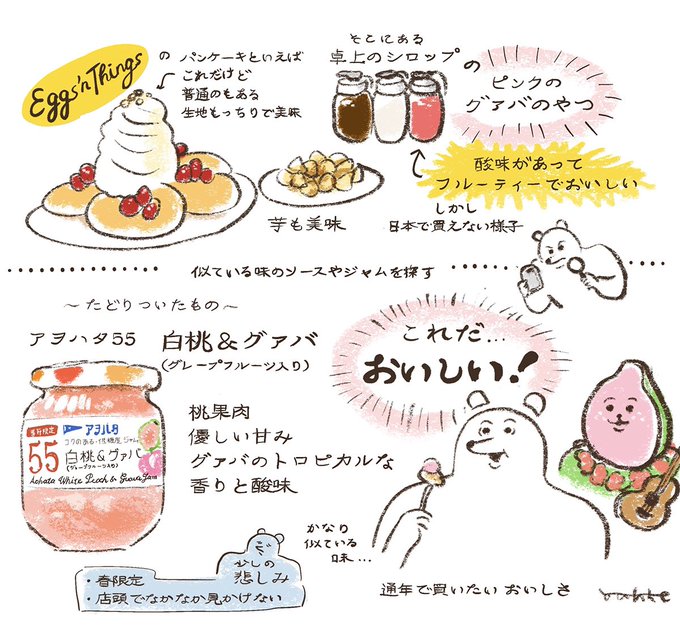 Eggs'n Things
の パンケーキといえば
これだけど
普通のもある
生地もっちりで美味
芋も美味
そこにある
卓上のシロップ
の
ピンクの
グァバのやつ
酸味があって
フルーティーでおいしい
しかし
日本で買えない様子
似ている味のソースやジャムを探す
〜たどりついたもの〜
アヲハタ55
白桃&グァバ
(グレープフルーツ入り)
桃果肉
優しい甘み
グァバのトロピカルな
香りと酸味
春季限定
アヲハタ
コクのある・低糖度ジャム
55
白桃&グァバ
(グレープフルーツ入り)
Aohata White Peach & Guava Jam
これだ…
おいしい!
かなり
似ている
味…
少しの
悲しみ
・春限定
・店頭でなかなか見かけない
通年で買いたい おいしさ